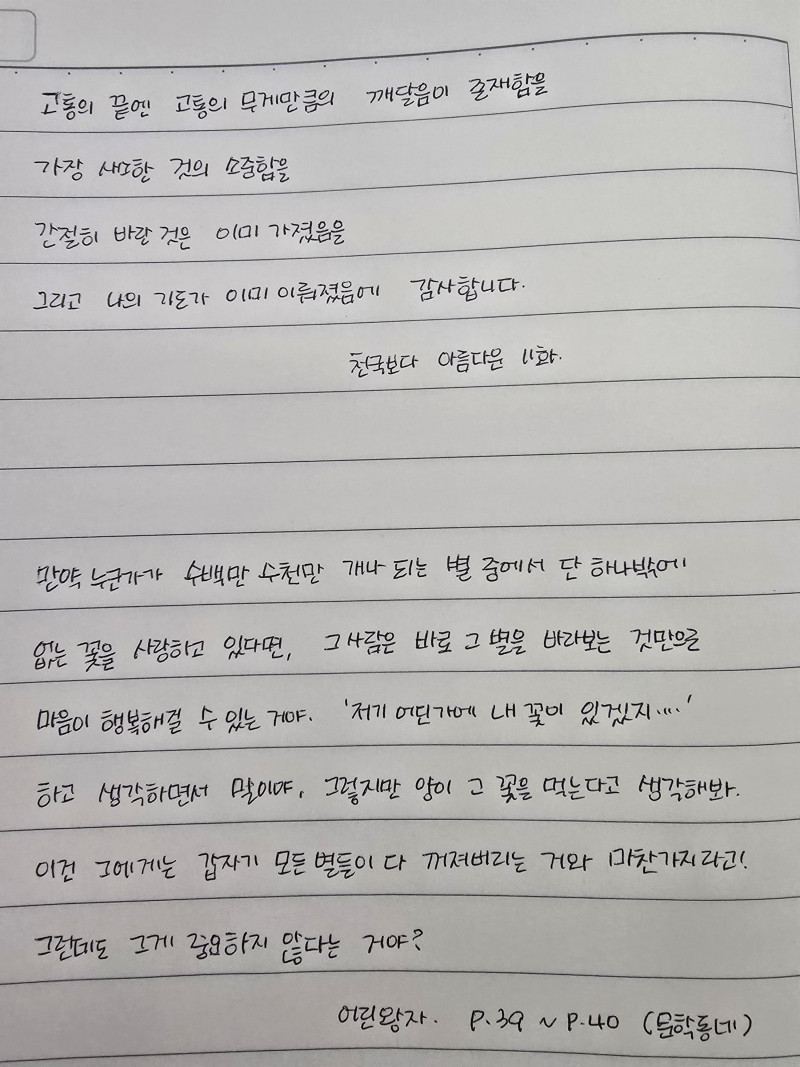 고통의 끝엔 고통의 무게만큼의 깨달음이 존재함을
가장 사소한 것의 소중함을
간절히 바란 것은 이미 가졌음을
그리고 나의 기도가 이미 이뤄졌음에 감사합니다.
천국보다 아름다운 11화.
만약 누군가가 수백만 수천만 개나 되는 별 중에서 단 하나밖에
없는 꽃을 사랑하고 있다면, 그 사람은 바로 그 별을 바라보는 것만으로
마음이 행복해질 수 있는 거야. '저기 어딘가에 내 꽃이 있겠지.....'
하고 생각하면서 말이야. 그렇지만 양이 그 꽃을 먹는다고 생각해봐.
이건 그에게는 갑자기 모든 별들이 다 꺼져버리는 거와 마찬가지라고!
그런데도 그게 중요하지 않다는 거야?
어린왕자. P.39 ~ P.40 (문학동네)